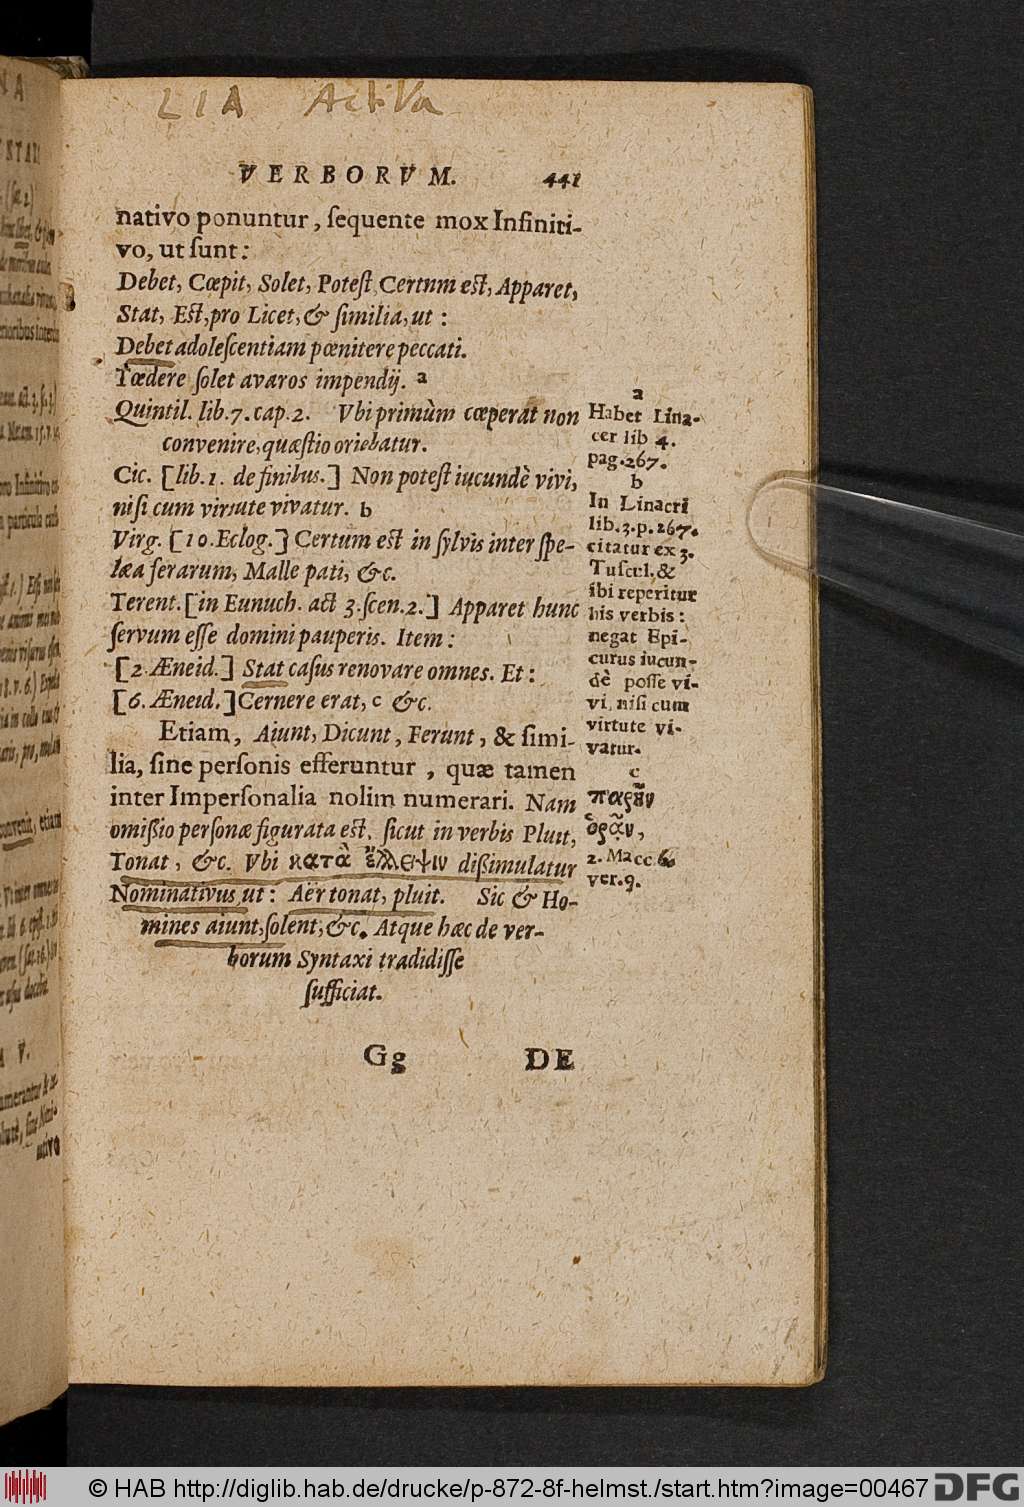 LIA Activa
VERBORVM. 441
nativo ponuntur, ſequente mox Infiniti-
vo, ut ſunt:
Debet, Cœpit, Solet, Poteſt, Certum eſt, Apparet,
Stat, Eſt, pro Licet, & ſimilia, ut:
Debet adoleſcentiam pœnitere peccati.
Tœdere ſolet avaros impendij. a
Quintil. lib. 7. cap. 2. Vbi primùm cœperat non
convenire, quæſtio oriebatur.
Cic. [lib. 1. de finibus.] Non poteſt iucundè vivi,
niſi cum virtute vivatur. b
Virg. [10. Eclog.] Certum eſt in ſylvis inter ſpe-
læa ferarum, Malle pati, &c.
Terent. [in Eunuch. act 3. ſcen. 2.] Apparet hunc
ſervum eſſe domini pauperis. Item:
[2. Æneid.] Stat caſus renovare omnes. Et:
[6. Æneid.] Cernere erat, c &c.
Etiam, Aiunt, Dicunt, Ferunt, & ſimi-
lia, ſine perſonis efferuntur, quæ tamen
inter Imperſonalia nolim numerari. Nam
omißio perſonæ figurata eſt, ſicut in verbis Pluit,
Tonat, &c. Vbi κατὰ ἔλλειψιν dißimulatur
Nominativus ut: Aër tonat, pluit. Sic & Ho-
mines aiunt, ſolent, &c. Atque hæc de ver-
borum Syntaxi tradidiſſe
ſufficiat.
Gg DE
a
Habet Lina-
cer lib 4.
pag. 267.
b
In Linacri
lib. 3. p. 267.
citatur ex 3.
Tuſcul. &
ibi reperitur
his verbis:
negat Epi-
curus iucun-
dè poſſe vi-
vi, niſi cum
virtute vi-
vatur.
c
παρῆν
ὁρᾶν,
2. Macc. 6.
ver. 9.
© HAB http://diglib.hab.de/drucke/p-872-8f-helmst./start.htm?image=00467 DFG